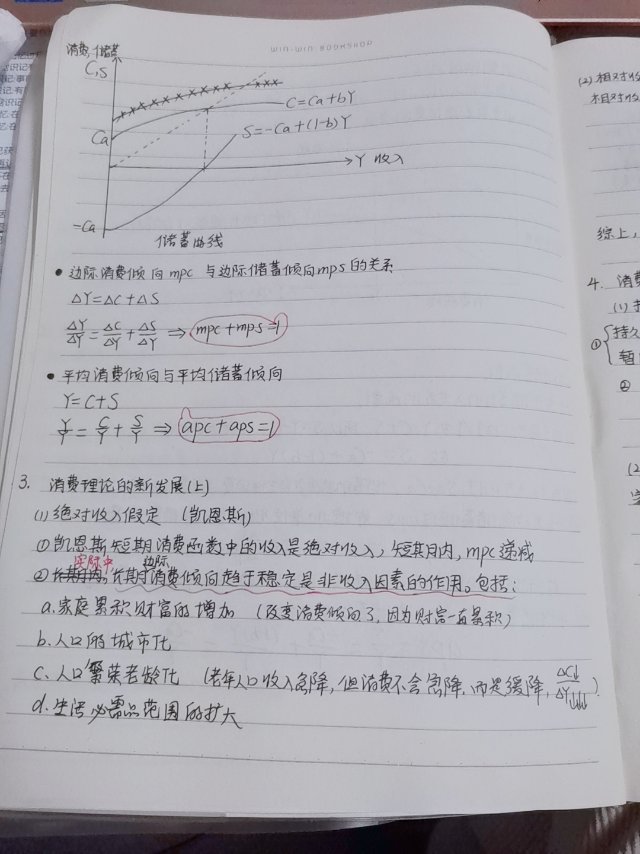 WIN-WIN BOOKSHOP
消费,储蓄
C,S
C=Ca+bY
Ca
S=-Ca+(1-b)Y
Y 收入
-Ca
储蓄曲线
• 边际消费倾向mpc 与边际储蓄倾向mps的关系
ΔY=ΔC+ΔS
ΔY/ΔY=ΔC/ΔY+ΔS/ΔY ⇒ mpc+mps=1
• 平均消费倾向与平均储蓄倾向
Y=C+S
Y/Y=C/Y+S/Y ⇒ apc+aps=1
3. 消费理论的新发展(上)
(1)绝对收入假定 (凯恩斯)
①凯恩斯短期消费函数中的收入是绝对收入,短期内,mpc递减
实际中, 边际
②长期内,长期消费倾向趋于稳定是非收入因素的作用。包括:
a.家庭累积财富的增加 (改变消费倾向了,因为财富一直累积)
b.人口的城市化
c.人口繁荣老龄化 (老年人口收入急降,但消费不会急降,而是缓降,ΔC↓/ΔY↓↓↓)
d.生活必需品范围的扩大
(2)相对收
相对收
综上,
4. 消费
(1)持
① 持久
暂
②
(2)